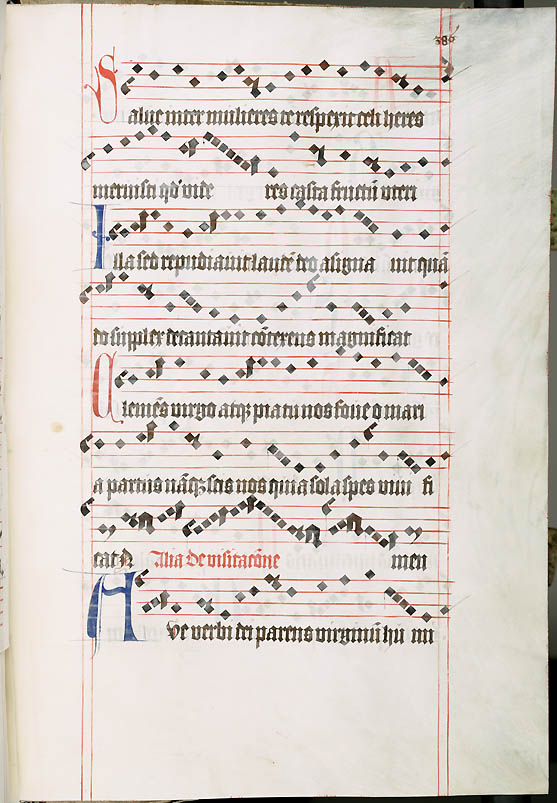 386
Salue inter mulieres te resperit celi heres
meruisti qd vide res casta fructū uteri
Illa sed repudiauit lautē deo a signa uit quā
do supplex decantauit cōterens magnificat
Clemēs virgo atqz pia tu nos foue o mari
a partus nāqz scis nos quia sola spes viui fi
cat Alia de visitacōne men
Aue verbi dei parens virginū hu mi